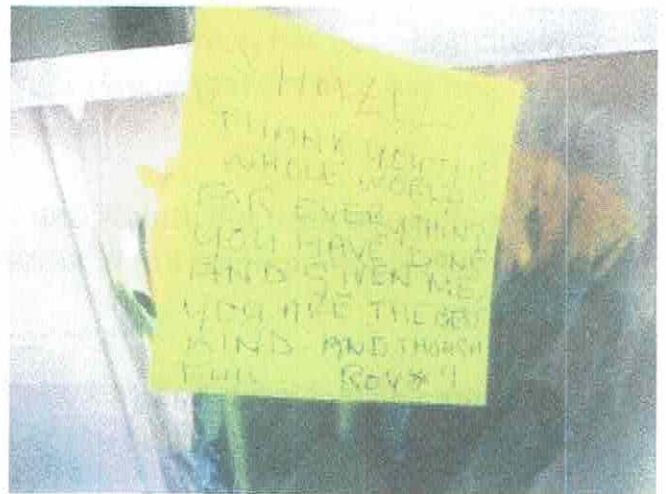 HAZEL
THANK YOU THE
WHOLE WORLD
FOR EVERYTHING
YOU HAVE DONE
AND GIVEN ME.
YOU ARE THE BEST
KIND AND THOUGH
FUL